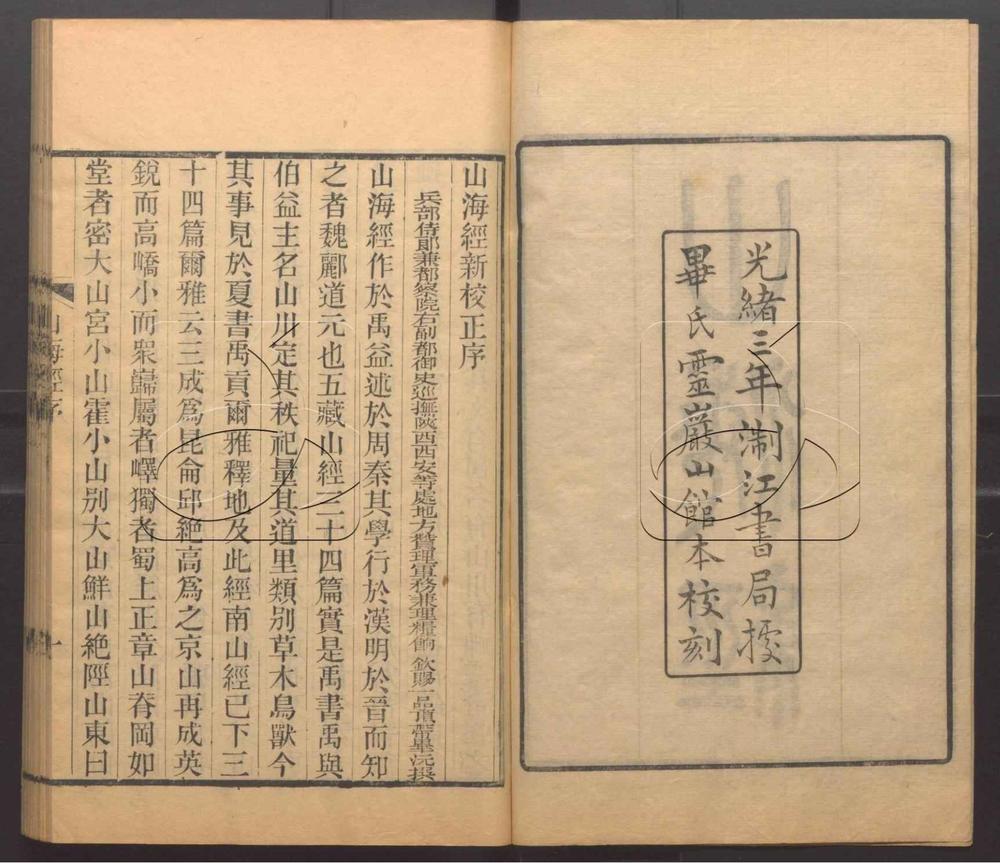 光緒三年浙江書局據
畢氏靈巖山館本校刻
山海經新校正序
兵部侍郎兼都察院右副都御史巡撫陝西西安等處地方贊理軍務兼理糧餉 欽賜一品頂帶畢沅撰
山海經作於禹益述於周秦其學行於漢明於晉而知
之者魏酈道元也五藏山經三十四篇實是禹書禹與
伯益主名山川定其秩祀量其道里類別草木鳥獸今
其事見於夏書禹貢爾雅釋地及此經南山經已下三
十四篇爾雅云三成爲昆侖邱絕高爲之京山再成英
銳而高嶠小而衆巋屬者嶧獨者蜀上正章山脊岡如
堂者密大山宮小山霍小山別大山鮮山絕陘山東曰
山海經序
一